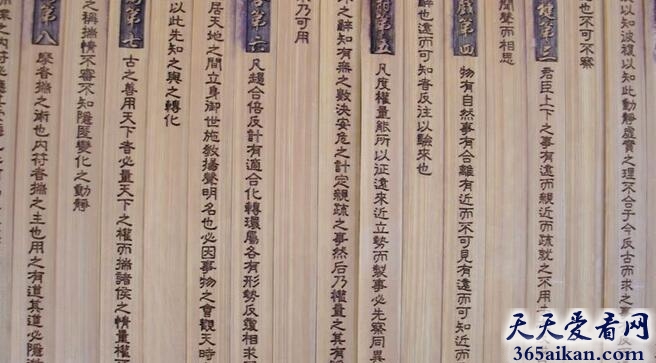 以知彼復以知此動靜虛實之理不合于今反古而求之事
也不可不察
揵第三
君臣上下之事有遠而親近而疏就之不用
聞聲而相思
第四
物有自然事有合離有近而不可見有遠而可知近而
辭也遠而可知者反往以驗來也
第五
凡度權量能所以征遠來近立勢而製事必先察同異
之辭知有無之數決安危之計定親疏之事然后乃權量之其有
乃可用
第六
凡趨合倍反計有適合化轉環屬各有形勢反覆相求
居天地之間立身御世施教揚聲明名也必因事物之會觀天時
以此先知之與之轉化
第七
古之善用天下者必量天下之權而揣諸侯之情量權
之稱揣情不審不知隱匿變化之動靜
第八
摩者揣之術也内符者揣之主也用之有道其道必隱
天天爱看网
365aikan.com